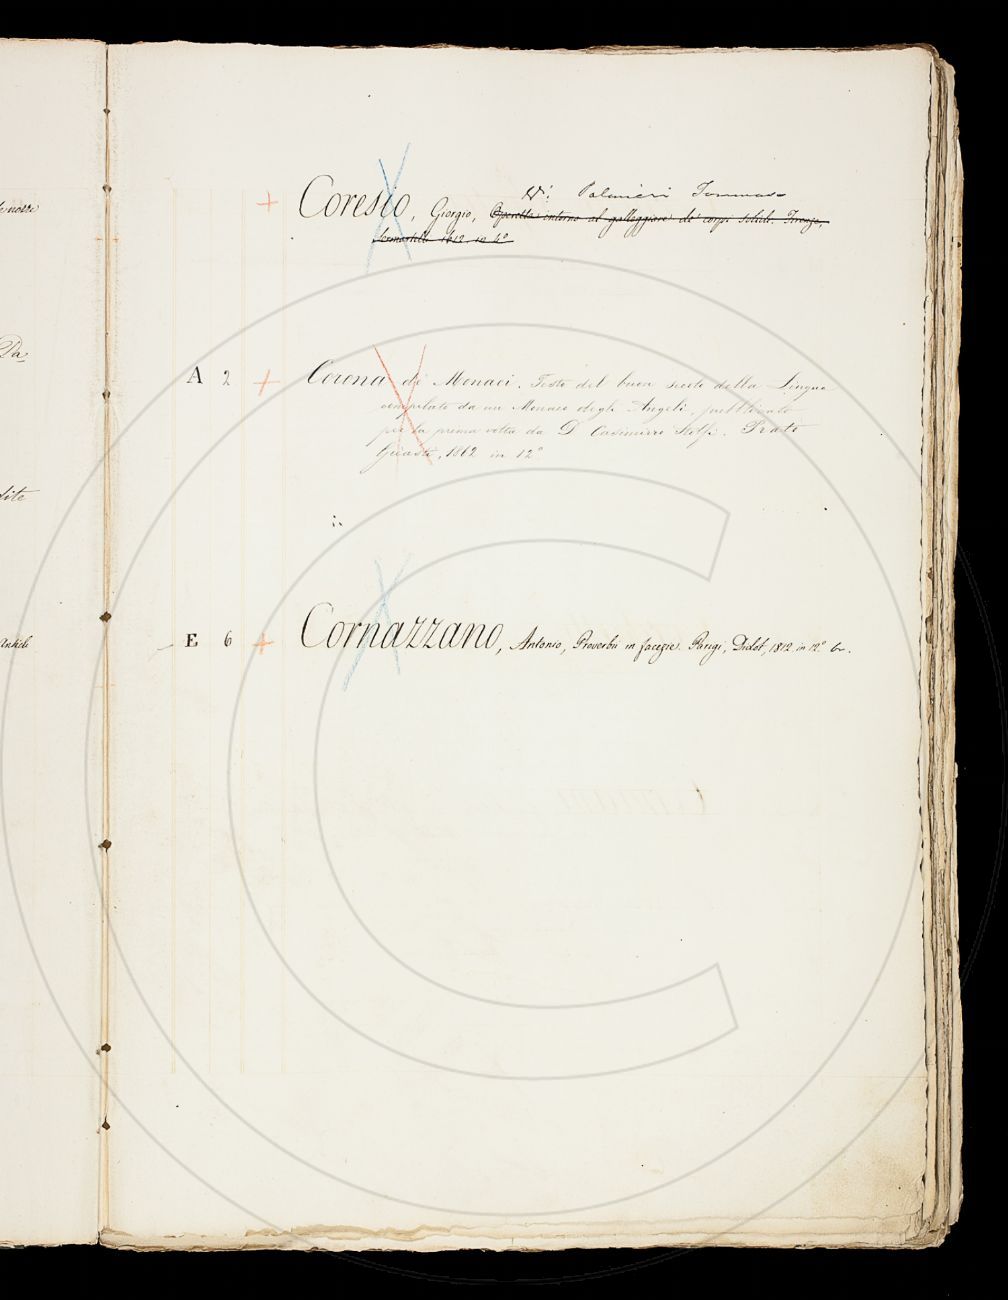 Vi: Palmieri Tommaso
+ Coresio, Giorgio, Operetta intorno al galleggiare de' corpi solidi. Firenze,
Sermartelli 1612 in 4°
A 2 + Corona de' Monaci. Testo del buon secolo della Lingua
compilato da un Monaco degli Angeli, pubblicato
per la prima volta da D. Casimiro Stolfi. Prato
Guasti, 1862 in 12°
E 6 + Cornazzano, Antonio, Proverbii in facezie. Parigi, Didot, 1812 in 12° br.
Da